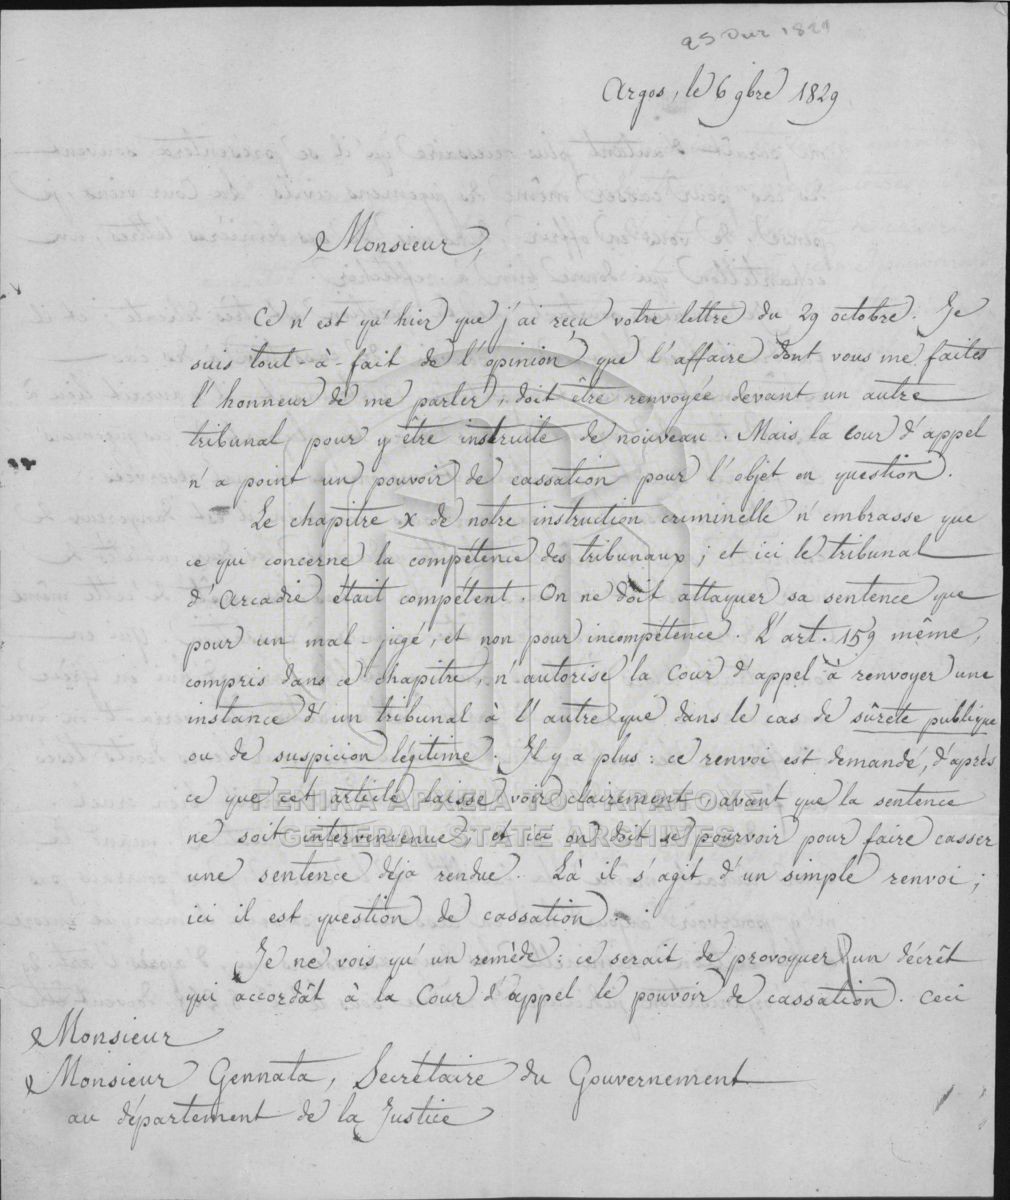 25 Oct 1829
Argos, le 6 9bre 1829
Monsieur,
Ce n'est qu'hier que j'ai reçu votre lettre du 29 octobre. Je
suis tout-à-fait de l'opinion que l'affaire dont vous me faites
l'honneur de me parler, doit être renvoyée devant un autre
tribunal pour y être instruite de nouveau. Mais la cour d'appel
n'a point un pouvoir de cassation pour l'objet en question.
Le chapitre X de notre instruction criminelle n'embrasse que
ce qui concerne la compétence des tribunaux; et ici le tribunal
d'Arcadie était compétent. On ne doit attaquer sa sentence que
pour un mal-jugé, et non pour incompétence. L'art. 159 même,
compris dans ce chapitre, n'autorise la Cour d'appel à renvoyer une
instance d'un tribunal à l'autre que dans le cas de sûreté publique
ou de suspicion légitime. Il y a plus: ce renvoi est demandé, d'après
ce que cet article laisse voir clairement avant que la sentence
ΓΕΝΙΚΑ ΑΡΧΕΙΑ ΤΟΥ ΚΡΑΤΟΥΣ
ne soit intervenue, et ici on doit se pourvoir pour faire casser
GENERAL STATE ARCHIVES
une sentence déja rendue. Là il s'agit d'un simple renvoi;
ici il est question de cassation.
Je ne vois qu'un remède: ce serait de provoquer un décrêt
qui accordât à la Cour d'appel le pouvoir de cassation. Ceci
Monsieur
Monsieur Gennata, Secrétaire du Gouvernement
au département de la Justice